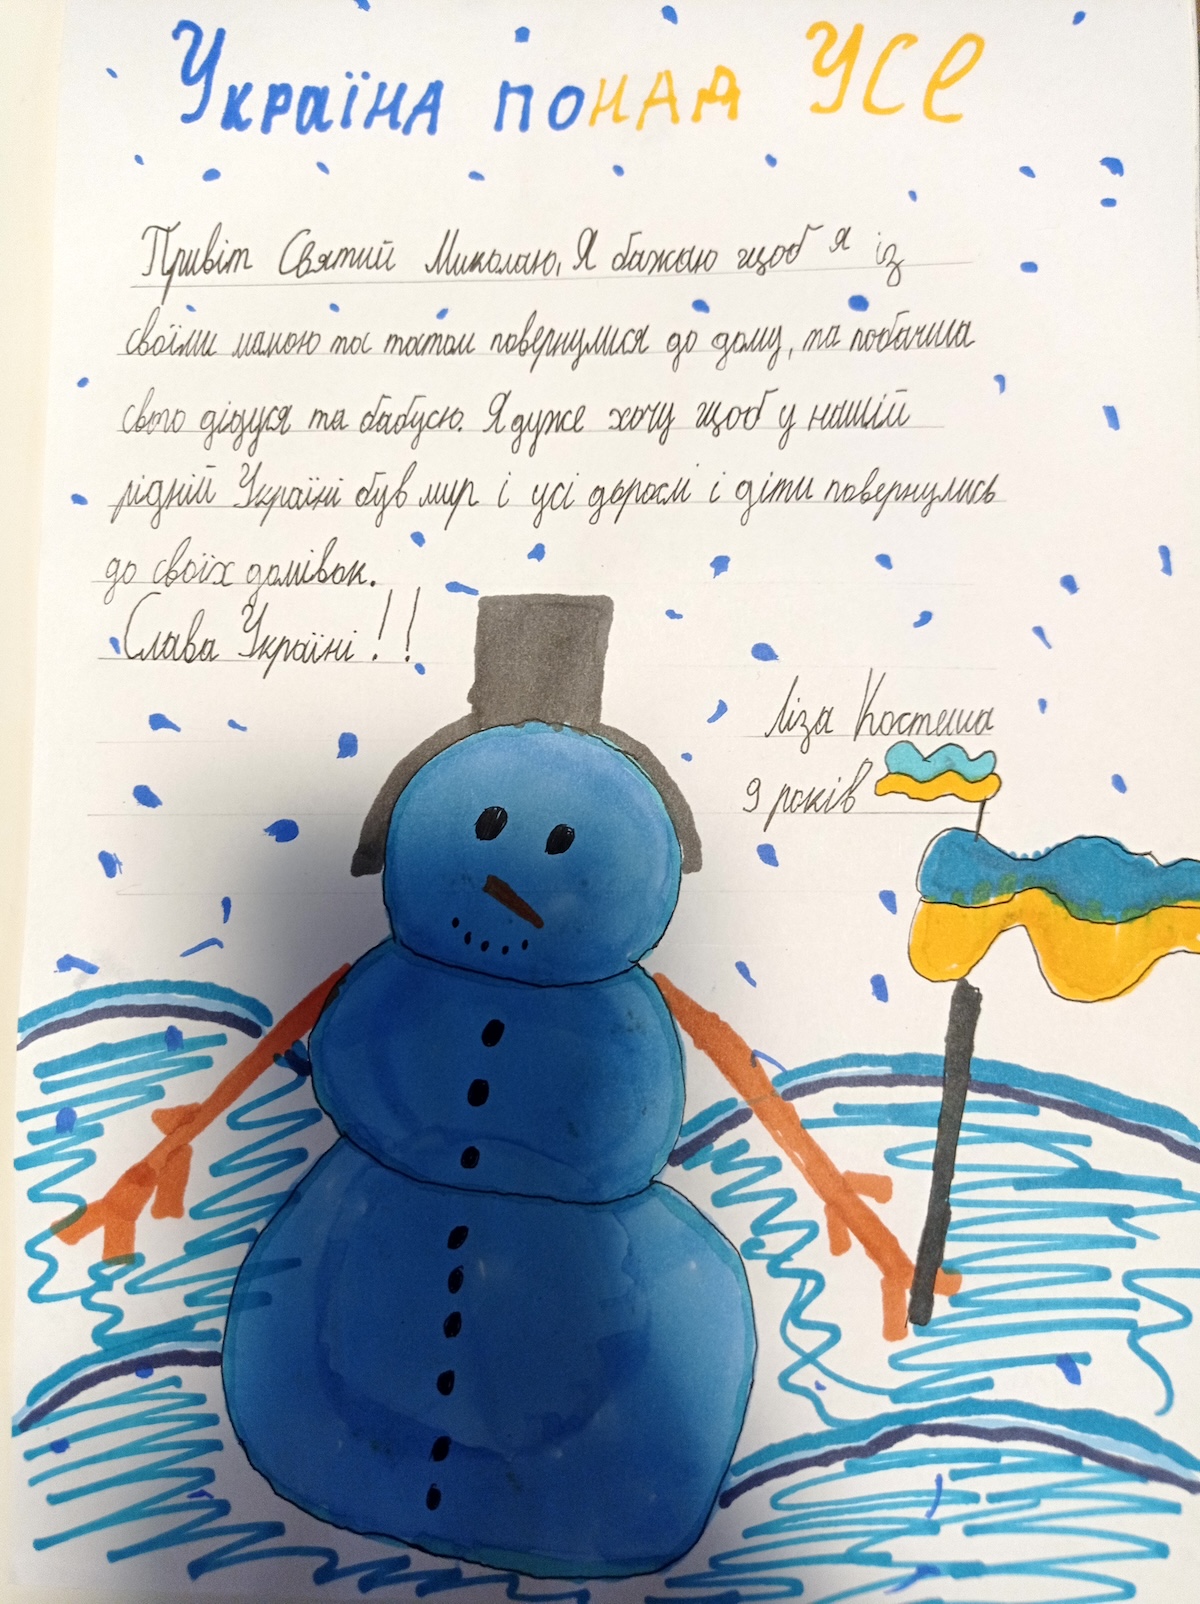 Україна понад усе
Привіт Святий Миколаю, Я бажаю щоб я із
своїми мамою та татом повернулися до дому, та побачила
свого дідуся та бабусю. Я дуже хочу щоб у нашій
рідній Україні був мир і усі дорослі і діти повернулись
до своїх домівок.
Слава Україні!!
Ліза Костеша
9 років